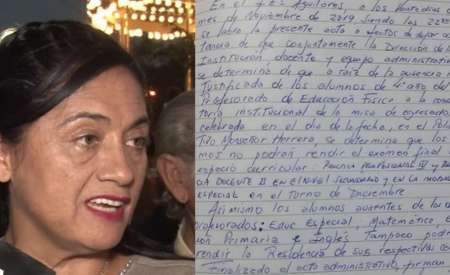 En el I.E.S Aguilares, a los
mes de Noviembre de 2019 siendo las 22
se labra la presente acta a efectos de dejar
tancia de que conjuntamente la Dirección de la
Institución docente y equipo administrativo
se determinó de que a raíz de la ausencia
Justificada de los alumnos de 4° año del
Profesorado de Educación Física a la
toria institucional de la misa de egresados
celebrada en el día de la fecha, en el Poli
tivo Monseñor Herrera, se determina que los
mos no podrán rendir el examen final
espacio curricular PRÁCTICA PROFESIONAL IV y
CIA DOCENTE II EN EL NIVEL SECUNDARIO Y EN LA MODA
ESPECIAL en el turno de Diciembre
Asimismo los alumnos ausentes de los
profesorados: Educ Especial, Matemática, E
ión Primaria e Inglés Tampoco podrán
rendir la Residencia de sus respectivas
Finalizado el acto administrativo, firman